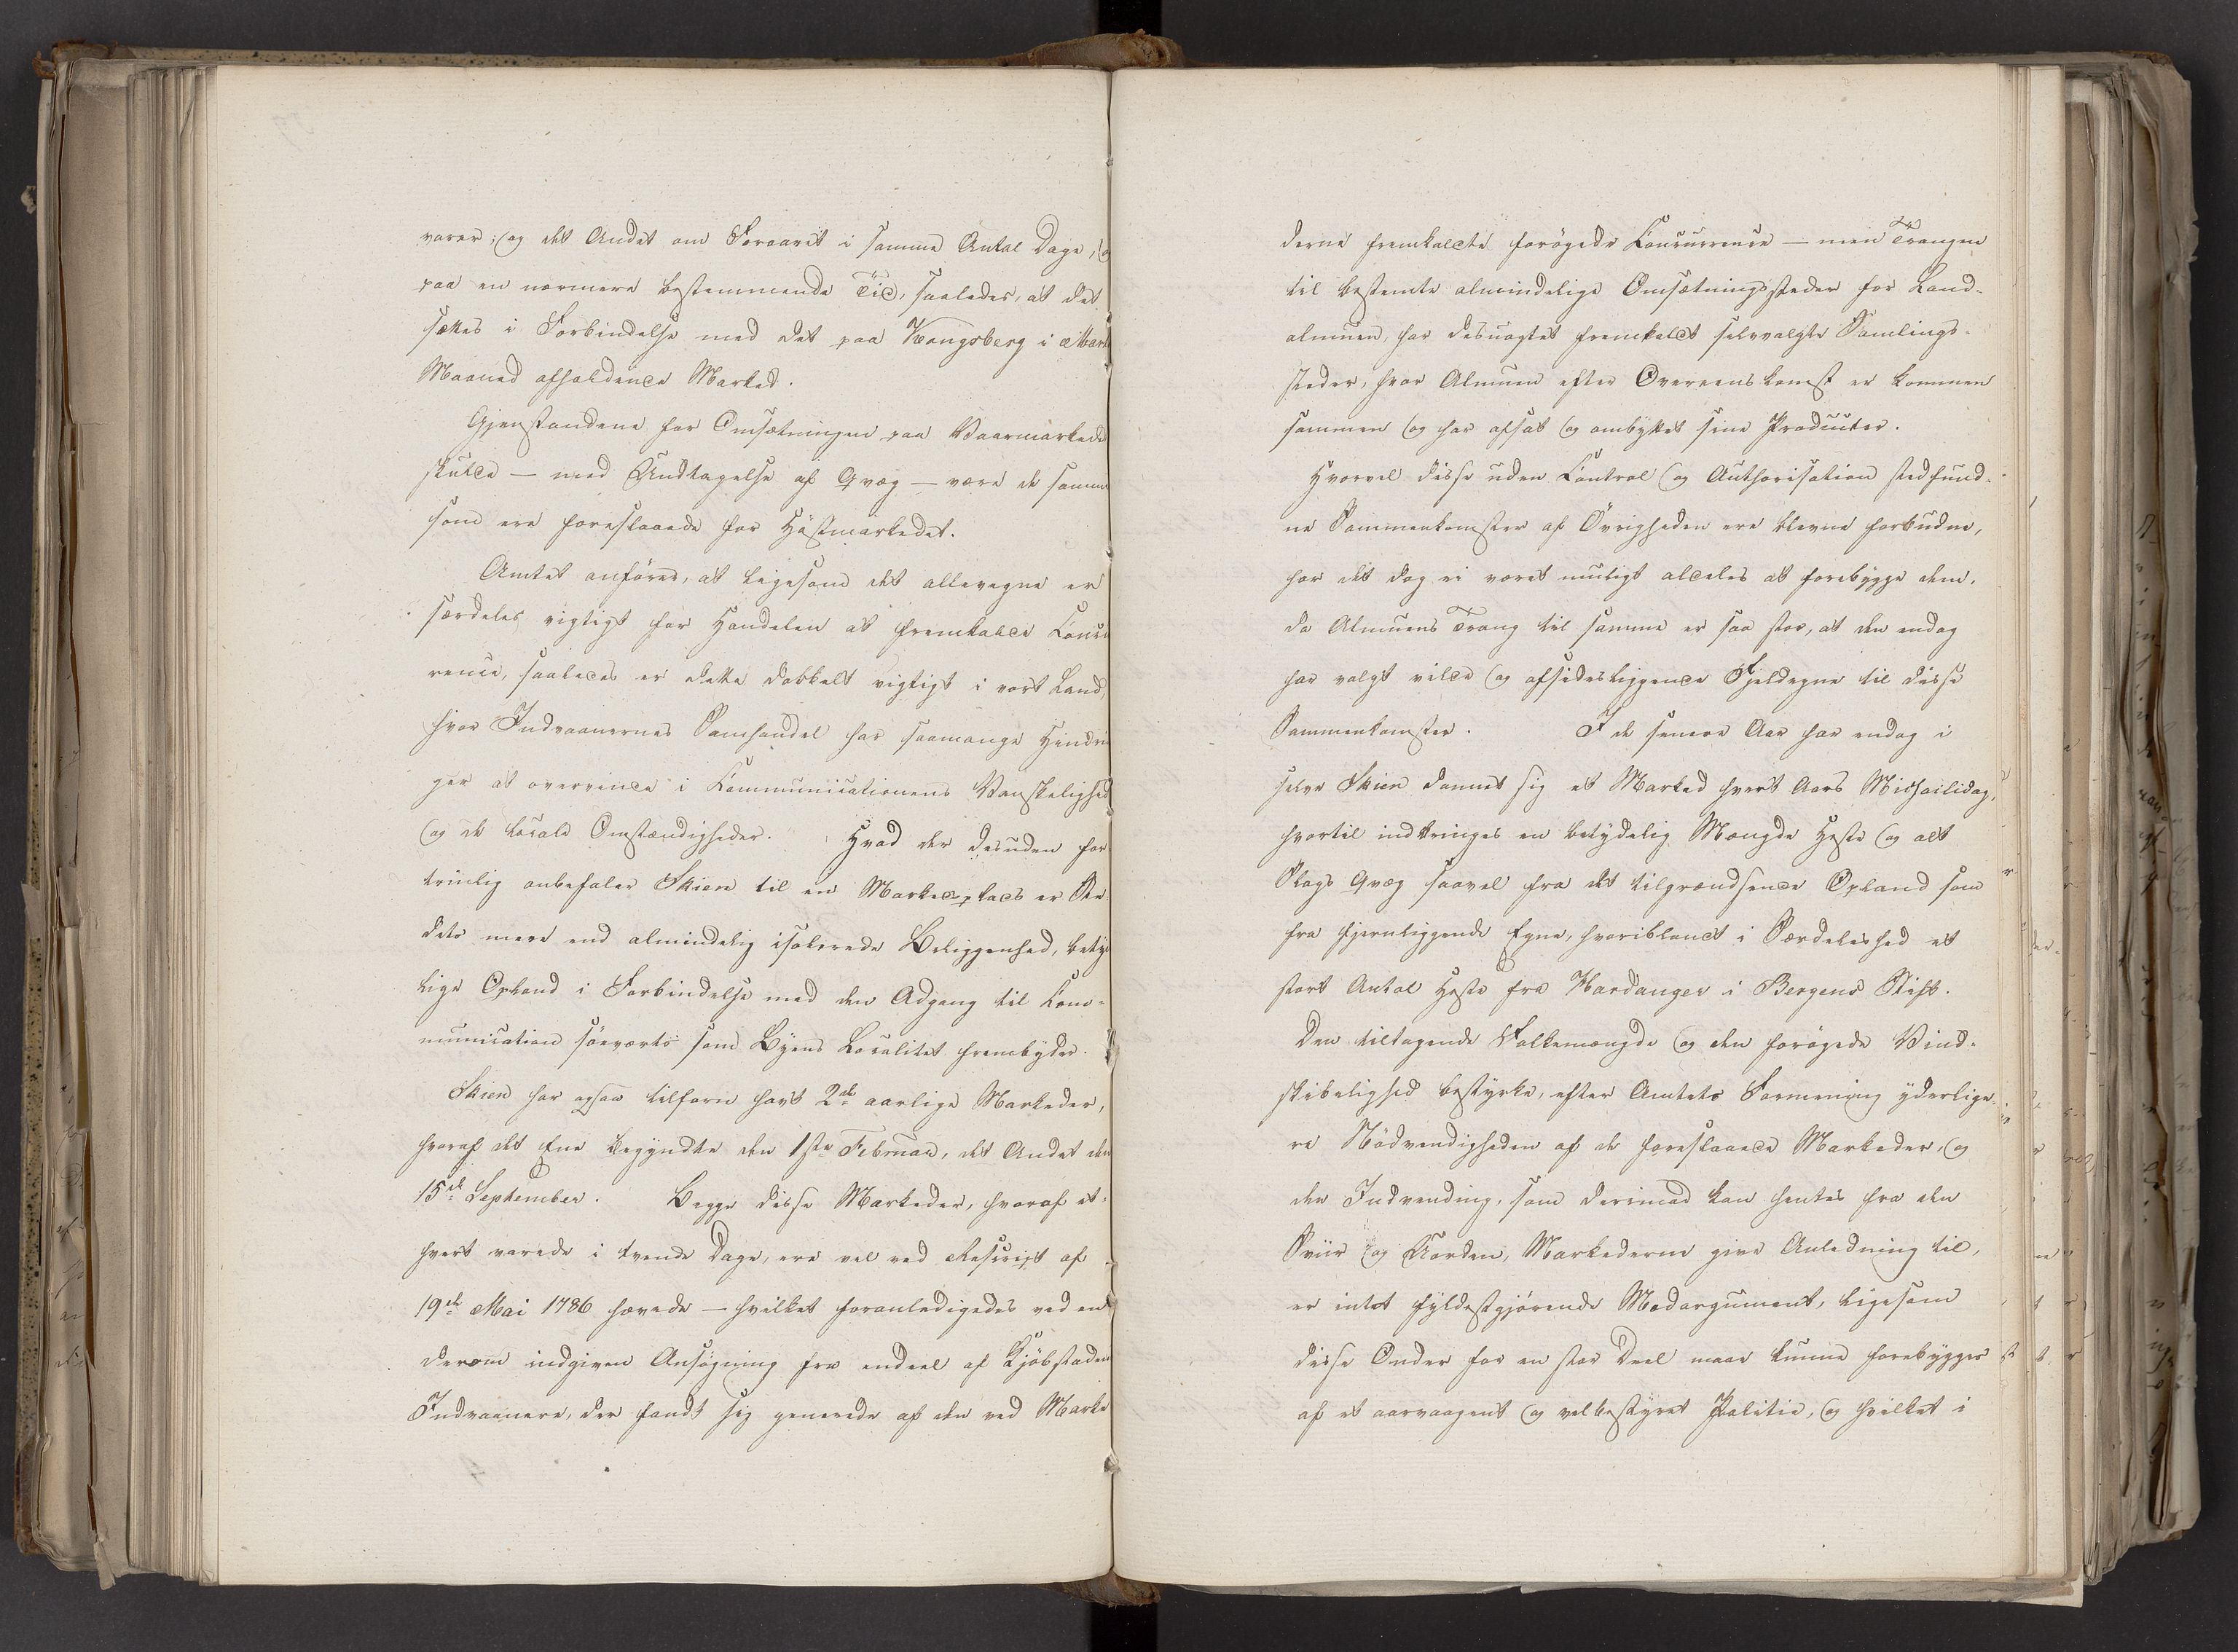 varer; og det Andet om Foraaret i samme Antal Dage, og
paa en nærmere bestemmende Tid, saaledes, at det
sættes i Forbindelse med det paa Kongsberg i Marts
Maaned afholdende Marked.
Gjenstandene for Omsætningen paa Vaarmarkedet
skulde — med Undtagelse af Qvæg — være de samme
som ere foreslaaede for Höstmarkedet.
Amtet anfører, at ligesom det allevegne er
særdeles vigtigt for Handelen at fremkalde Concur
rence, saaledes er dette dobbelt vigtigt i vort Land,
hvor Indvaanernes Samhandel har saamange Hindrin
ger at overvinde i Communicationens Vanskelighed
og de locale Omstændigheder. Hvad der desuden for
trinlig anbefaler Skien til en Markedsplads er Ste
dets mere end almindelig isolerede Beliggenhed, betyde
lige Opland i Forbindelse med den Adgang til Com-
munication söeværts som Byens Localitet frembyder.
Skien har ogsaa tilforn havt 2de aarlige Markeder,
hvoraf det Ene begyndte den 1ste Februar, det Andet den
15de September. Begge disse Markeder, hvoraf et-
hvert varede i tvende Dage, ere vel ved Rescript af
19de Mai 1786 hævede — hvilket foranledigedes ved en
derom indgiven Ansögning fra endeel af Kjöbstadens
Indvaanere, der fandt sig generede af den ved Marke
derne fremkaldte forögede Concurrence — men Trangen
til bestemte almindelige Omsætningssteder for Land-
almuen, har desuagtet fremkaldt selvvalgte Samlings-
steder, hvor Almuen efter Overeenskomst er kommen
sammen og har afsat og ombyttet sine Producter.
Hvorvel disse uden Control og Authorisation stedfund-
ne Sammenkomster af Övrigheden ere blevne forbudne,
har det dog ei været muligt aldeles at forebygge dem,
da Almuens Trang til samme er saa stor, at den endog
har valgt vilde og afsidesliggende Fjeldegne til disse
Sammenkomster. I de senere Aar har endog i
selve Skien dannet sig et Marked hvert Aars Michailidag,
hvortil indbringes en betydelig Mængde Heste og alt
Slags Qvæg saavel fra det tilgrændsende Opland som
fra fjernliggende Egne, hvoriblandt i Særdeleshed et
stort Antal Heste fra Hardanger i Bergens Stift.
Den tiltagende Folkemængde og den forögede Vind-
skibelighed bestyrke, efter Amtets Formening yderlige-
re Nödvendigheden af de foreslaaede Markeder, og
den Indvending, som derimod kan hentes fra den
Sviir og Uorden, Markederne give Anledning til,
er intet fyldestgjörende Modargument, ligesom
disse Onder for en stor Deel maae kunne forebygges
af et aarvaagent og velbestyret Politie, og hvilket i